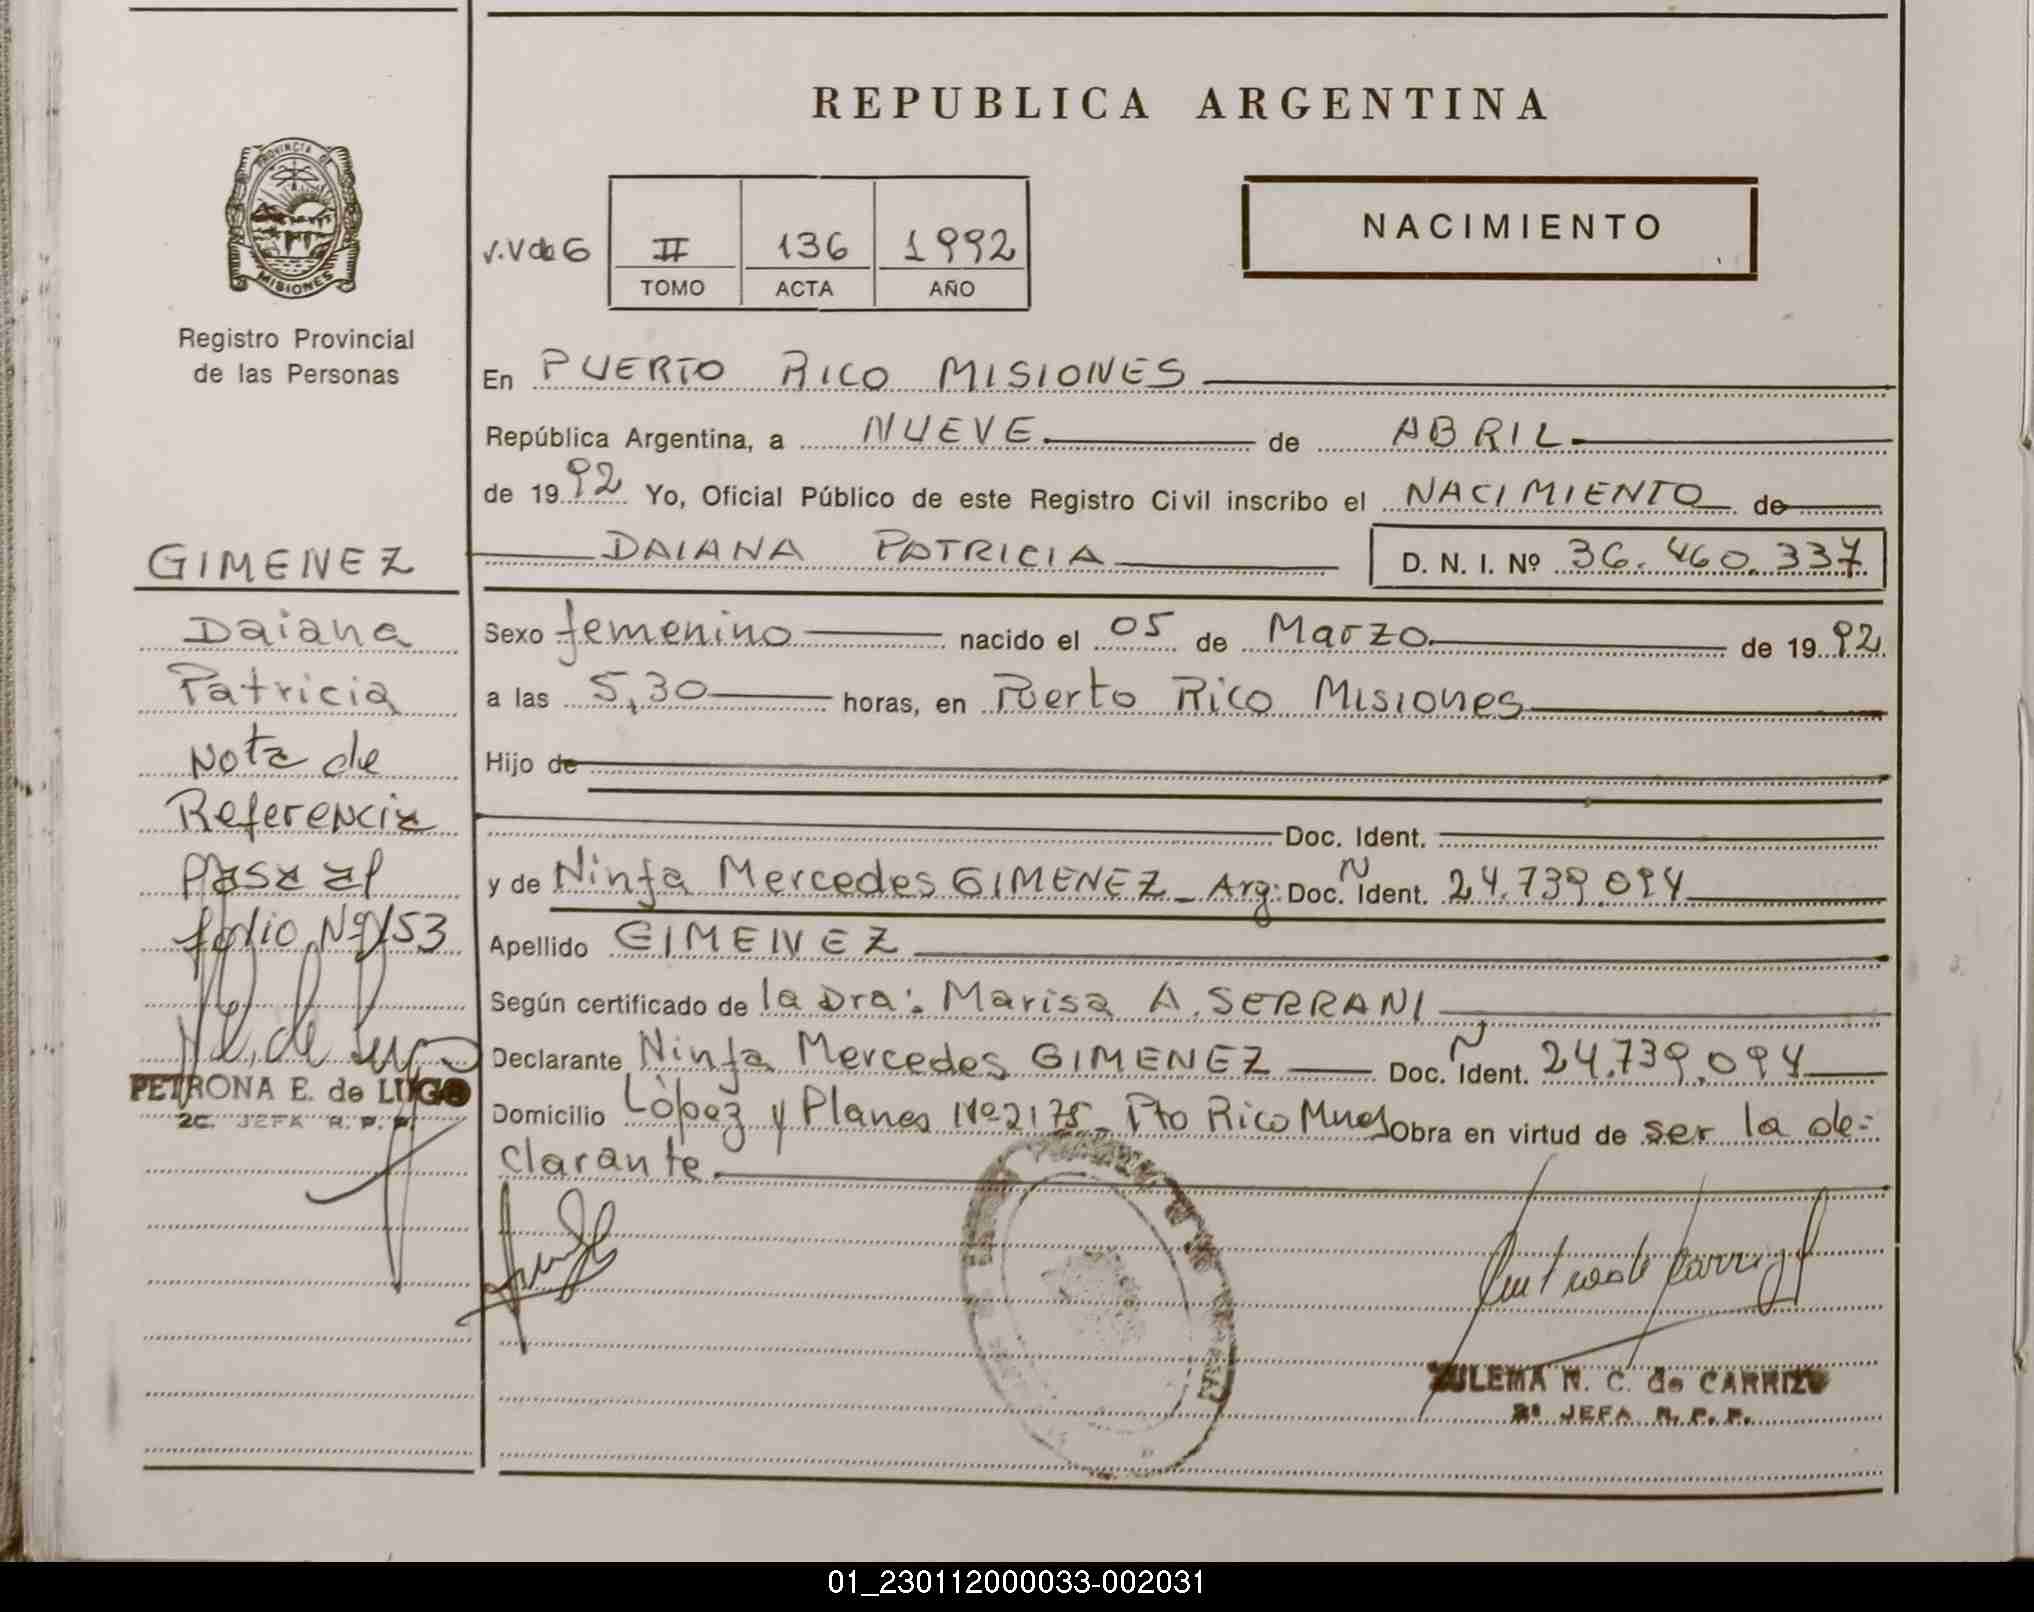 REPUBLICA ARGENTINA
PROVINCIA DE
MISIONES
Registro Provincial
de las Personas
NACIMIENTO
II 136 1992
TOMO ACTA AÑO
En PUERTO RICO MISIONES
República Argentina, a NUEVE de ABRIL
de 1992 Yo, Oficial Público de este Registro Civil inscribo el NACIMIENTO de
DAIANA PATRICIA D. N. I. Nº 36.460.337
Sexo femenino nacido el 05 de Marzo de 1992
a las 5,30 horas, en Puerto Rico Misiones
Hijo de
Doc. Ident.
y de Ninfa Mercedes GIMENEZ Arg: Doc. Ident. 24.739.094
Apellido GIMENEZ
Según certificado de la Dra: Marisa A. SERRANI
Declarante Ninfa Mercedes GIMENEZ Doc. Ident. 24.739.094
Domicilio López y Planes Nº 2175 Pto Rico Mnes Obra en virtud de ser la de-
clarante
GIMENEZ
Daiana
Patricia
Nota de
Referencia
Pasa al
folio Nº 153
PETRONA E. de LUGO
2C. JEFA R. P. P.
ZULEMA N. C. de CARRIZO
2ª JEFA R. P. P.
01_230112000033-002031